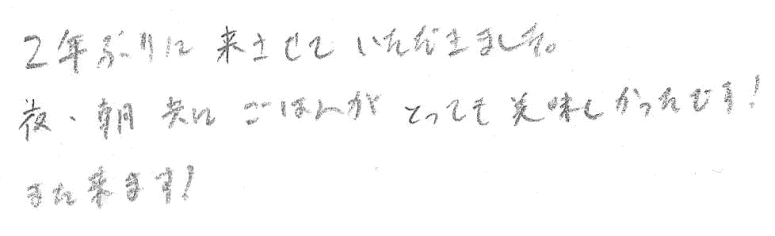 2年ぶりに来させていただきました。
夜、朝共にごはんがとっても美味しかったです!
また来ます!